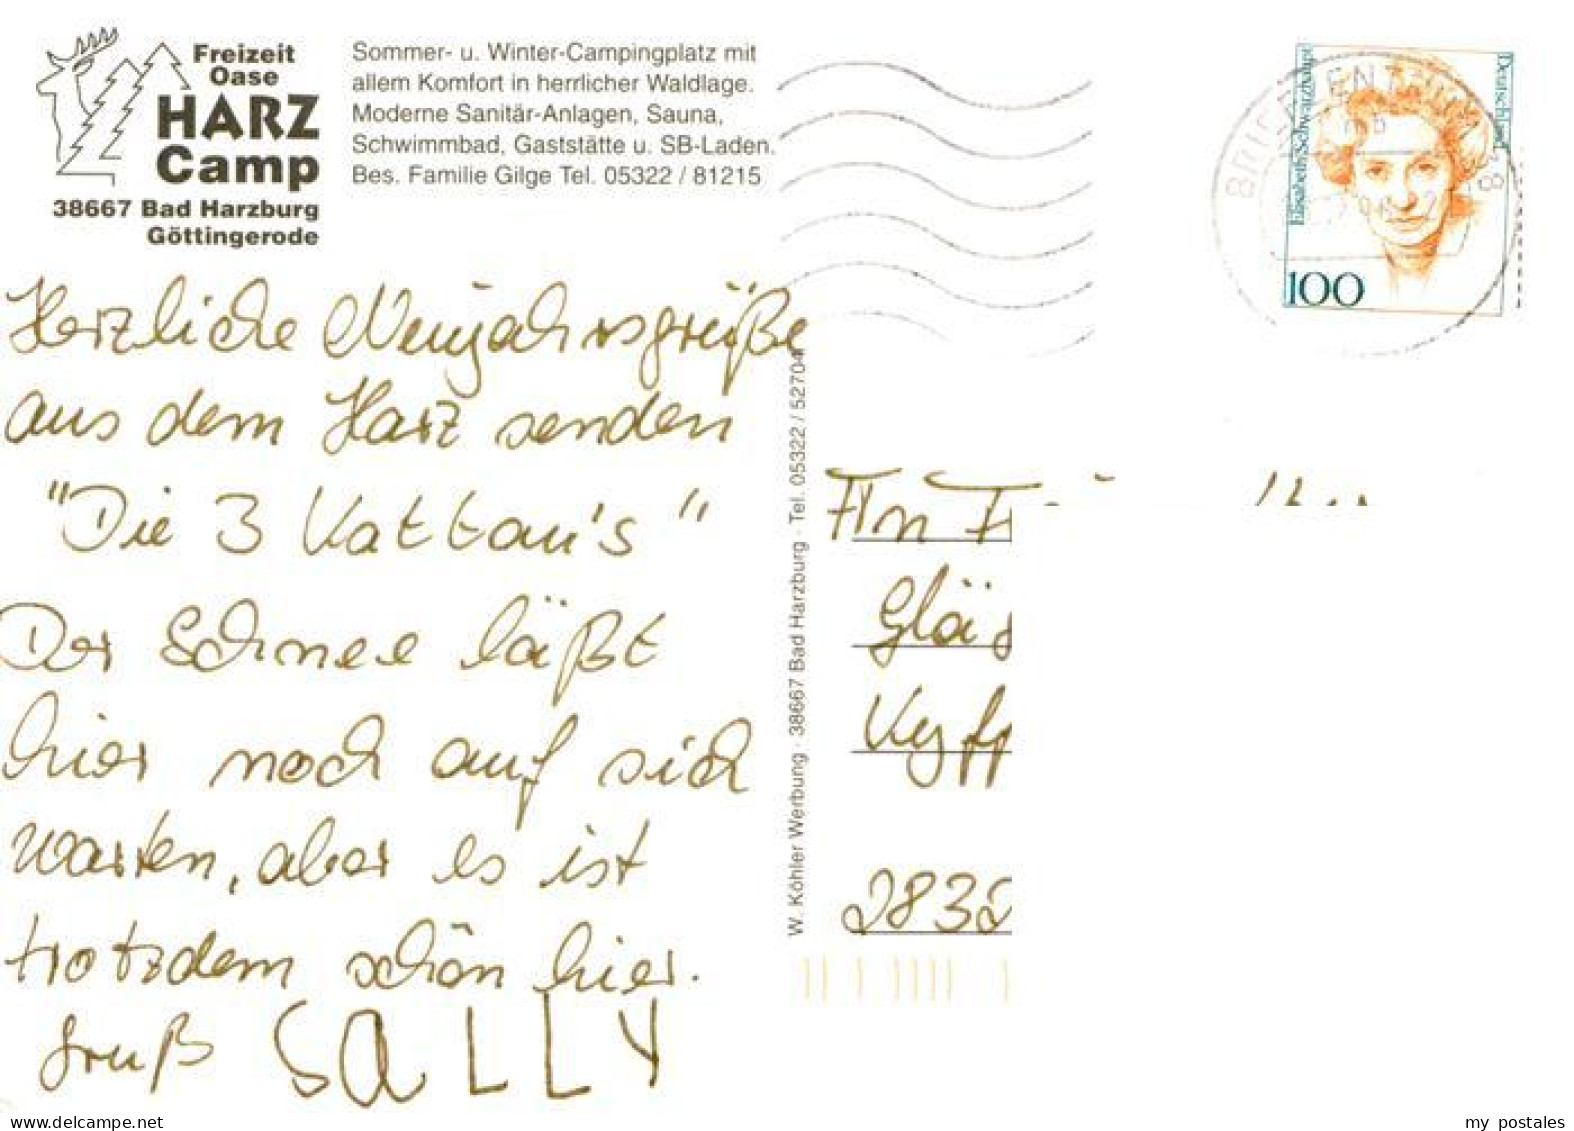 Freizeit
Oase
HARZ
Camp
38667 Bad Harzburg
Göttingerode
Sommer- u. Winter-Campingplatz mit
allem Komfort in herrlicher Waldlage.
Moderne Sanitär-Anlagen, Sauna,
Schwimmbad, Gaststätte u. SB-Laden.
Bes. Familie Gilge Tel. 05322 / 81215
Herzliche Neujahrsgrüße
aus dem Harz senden
"Die 3 Kattau's"
Der Schnee läßt
hier noch auf sich
warten, aber es ist
trotzdem schön hier.
Gruß SALLY
W. Köhler Werbung · 38667 Bad Harzburg · Tel. 05322 / 52704
Deutschland
Elisabeth Schwarzhaupt
100
BRIEFZENTRUM 38
An
my postales
delcampe.net